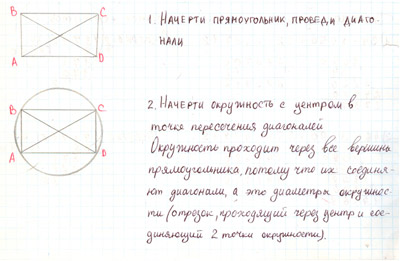 B C
A D
1. Начерти прямоугольник, проведи диаго-
нали
B C
A D
2. Начерти окружность с центром в
точке пересечения диагоналей
Окружность проходит через все вершины
прямоугольника, потому что их соединя-
ют диагонали, а это диаметры окружнос-
ти (отрезок, проходящий через центр и сое-
диняющий 2 точки окружности).